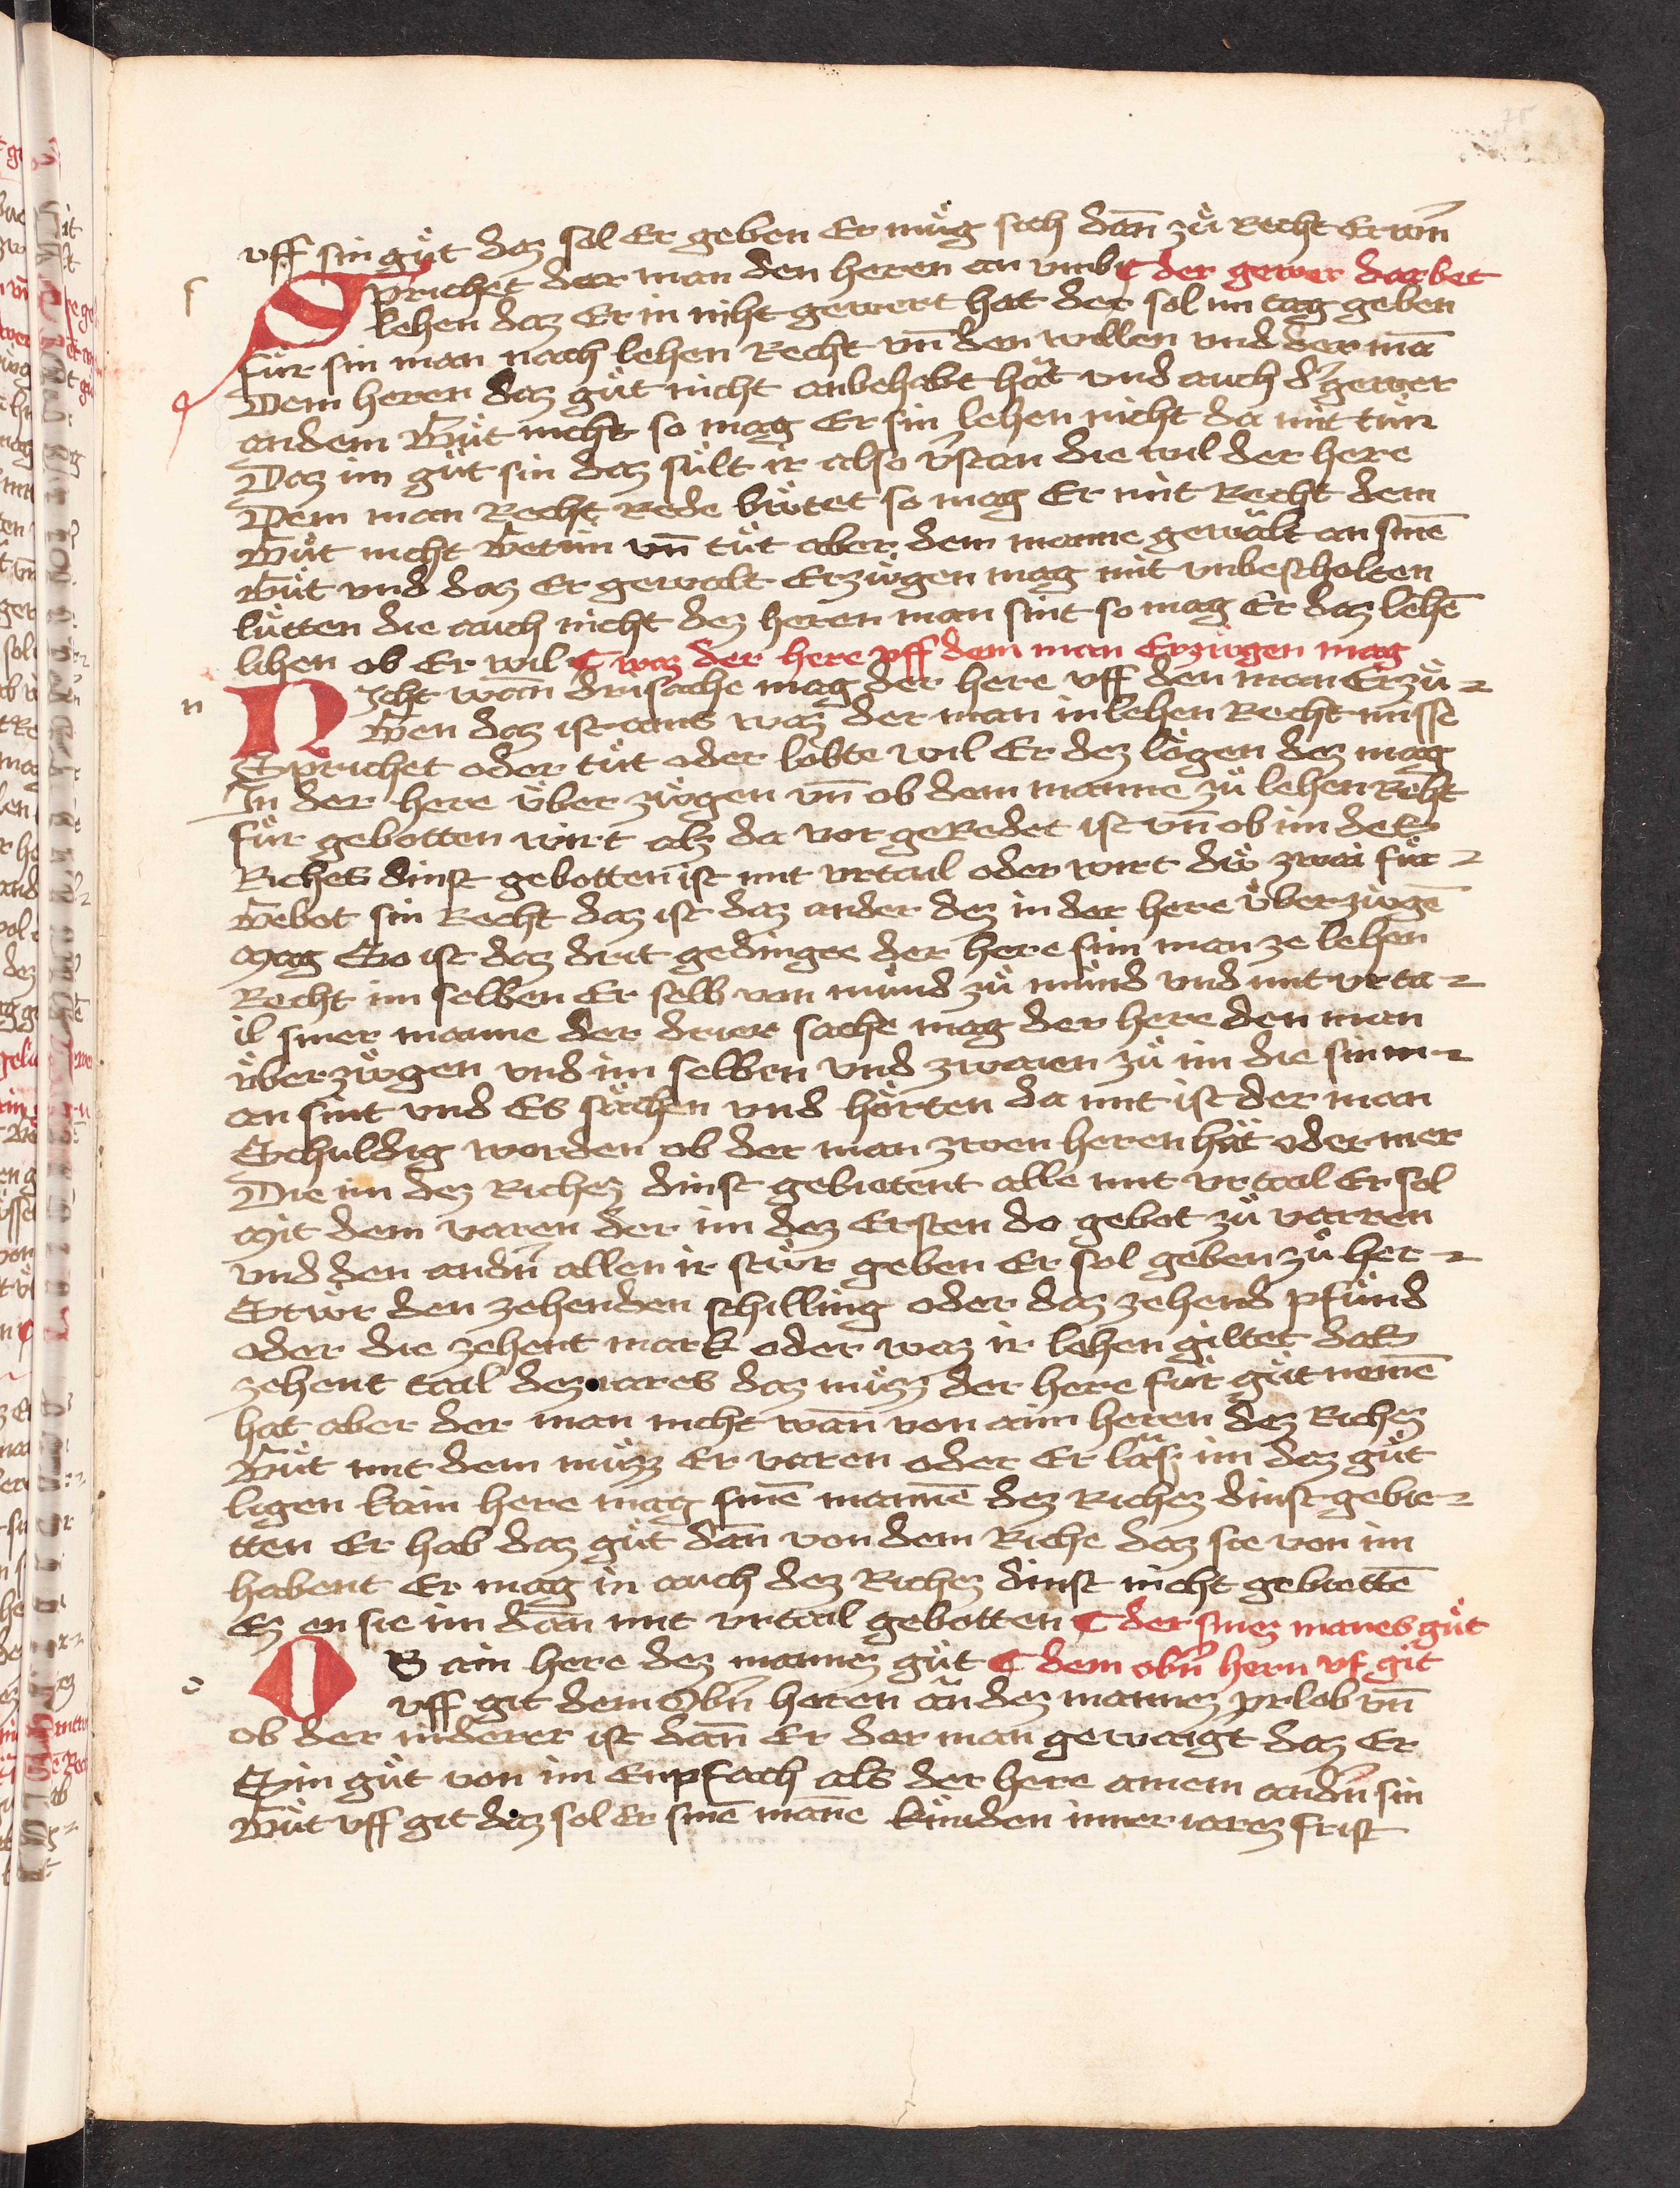 vff sin guͦt daz sol Er geben Er muͤg sich dan̄ zuͤ Recht Erwern
Sprichet der man den heren an vmb ¶ der gewer darbet
lehen daz Er in niht gewert hat der sol im tag geben
fuͤr sin man nach lehen Recht vn̄ den willen vnd der mā
Dem heren daz guͦt nicht anbehabt hat vnd auch d' gewer
andem Guͦt nicht so mag Er sin lehen nicht da mit tuͦn
Daz im guͦt sin daz suͤlt ir also v'stan die wil der here
Dem man Recht Rede buͤtet so mag Er mit Recht dem
Guͦt nicht Getuͦn vn̄ tuͦt aber dem manne gewalt an sinē
Guͦt vnd daz Er gewalt Erzuͤgen mag mit vnbescholten
luͤtten die auch nicht dez heren man sint so mag Er daz lehē
lihen ob Er wil ¶ waz der here vff dem man Erzuͤgen mag
Nicht wan̄ dri sache mag der here vff den man Erzuͤ-
Gen daz ist ains waz der man in lehen Recht misse
Sprichet oder tuͦt oder lobte wil Er dez loͤgen dez mag
In der here uͤber zuͤgen vn̄ ob dem manne zuͦ lehen Reht
fuͤr gebotten wirt alz da vor geRedet ist vn̄ ob im dez
Riches dinst gebotten ist mit vrtail oder wirt duͤ zwai fuͤr-
Gebot sin Recht daz ist daz ander dez in der here uͤberzuͤgē
Mag So ist daz drit gedinget der here sim man ze lehen
Recht im selben Er selb von mund zuͦ mund vnd mit vrta-
il siner manne der drier sache mag der here den man
uͤberzuͤgen vnd im selben vnd zwaien zuͦ im die sin m-
an sint vnd Es saͤchen vnd hoͤrten da mit ist der man
Schuldig worden ob der man zwen heren hat oder mer
Die im dez Richez dinst gebietent alle mit vrtail Er sol
Mit dem varen der im dez Ersten do gebot zuͦ varren
vnd den andn̄ allen ir stuͤr geben Er sol geben zuͦ her-
Stuͤr den zehenden schilling oder daz zehend pfund
oder die zehent mark oder waz ir lehen giltet daz
zehent tail dez iares daz muͦzz der here fuͤr guͦt nemē
hat aber der man nicht wan̄ von aim heren dez Richez
Guͦt mit dem muͦzz Er varen oder Er lasz im daz guͦt
ligen kain here mag sinē mannē dez Richez dinst gebie-
tten Er hab daz guͦt dan̄ von dem Riche daz sie von im
habent Er mag in auch dez Richez dinst nicht gebiettē
Ez en sie im dan̄ mit vrtail gebotten ¶ der sinez manes guͦt
OB ain here dez mannez guͦt ¶ dem obn̄ hern vf git
vff git dem Obn̄ heren an dez mannez vrlob vn̄
ob der niderer ist dan̄ Er der man gewaigt daz Er
Sin guͦt von im Enpfach als der here ainem andn̄ sin
Guͦt vff git diz sol Er sinē mane kuͤnden inner iarez frist